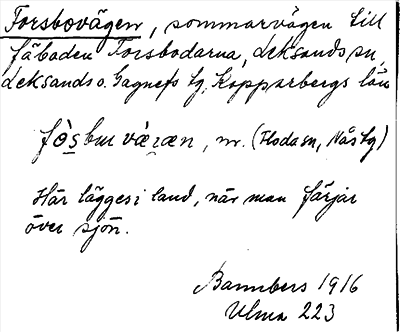 Forsbovägen, sommarvägen till
fäbaden Forsbodarna, Leksands sn,
Leksands o. Gagnefs tg, Kopparbergs län
fò̱sbuvæ̀ræn, m. (Flodasn, Nås tg)
Här lägges i land, när man färjar
över sjön.
Bannbers 1916
Ulma 223